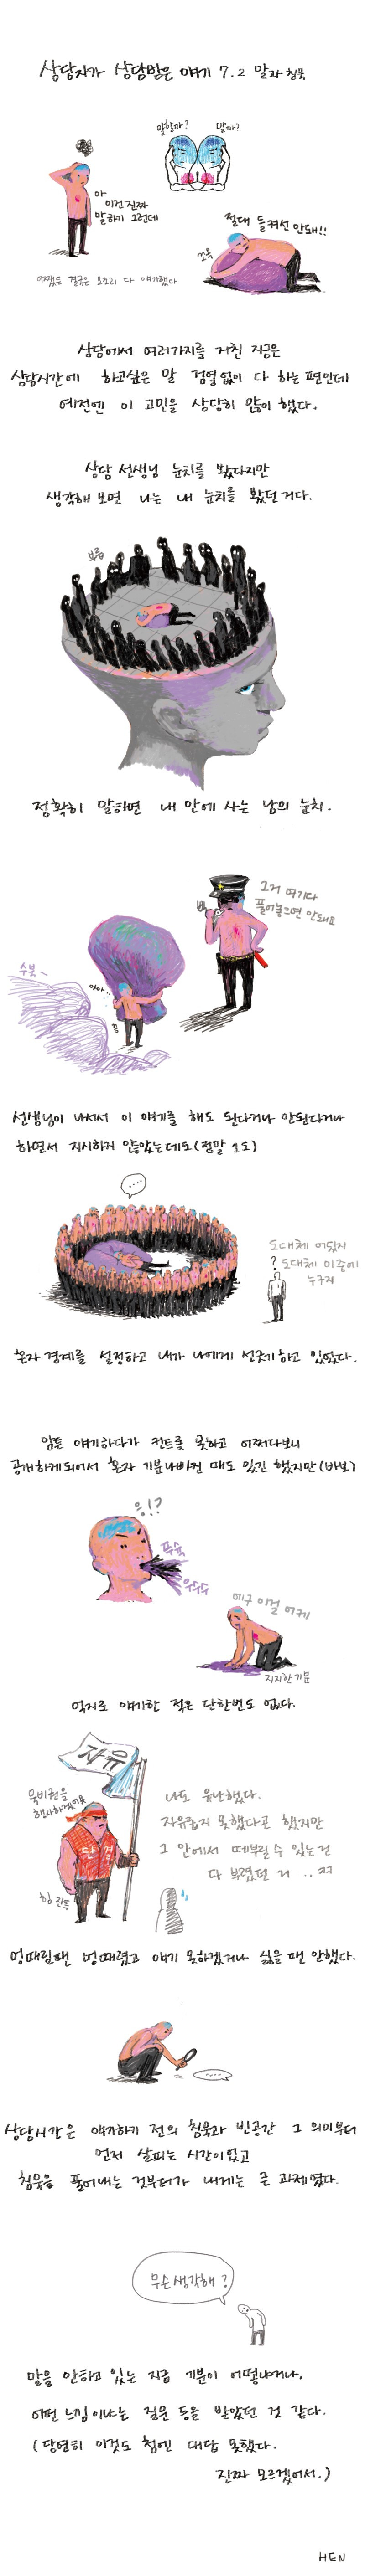 상담자가 상담받은 얘기 7.2 말과 침묵
말할까?
말까?
아
이건 진짜
말하기 그런데
어쨌든 결국은 모조리 다 얘기했다
절대 들켜선 안돼!!
상담에서 여러가지를 거친 지금은
상담시간에 하고싶은 말 검열없이 다 하는 편인데
예전엔 이 고민을 상당히 많이 했다.
상담 선생님 눈치를 봤다지만
생각해보면 나는 내 눈치를 봤던거다.
정확히 말하면 내 안에 사는 남의 눈치.
그거 여기다
풀어놓으면 안돼요
삑
수북~
선생님이 나서서 이 얘기를 해도 된다거나 안된다거나
하면서 지시하지 않았는데도(정말 1도)
....
도대체 어딨지
? 도대체 이중에
누구지
혼자 경계를 설정하고 내가 나에게 선긋기하고 있었다.
암튼 얘기하다가 컨트롤 못하고 어쩌다보니
공개하게되어서 혼자 기분나빠진 때도 있긴 했지만(바보)
응!?
푸슉
우수수
에구 이걸 어케
지지한 기분
억지로 얘기한 적은 단한번도 없다.
자유
묵비권을
행사하겠어욧
단결
힘 잔뜩
나도 유난했다.
자유롭지 못했다곤 했지만
그 안에서 떼부릴 수 있는건
다 부렸던 거 ..ㅋㅋ
멍때릴땐 멍때렸고 얘기 못하겠거나 싫을 땐 안했다.
....
상담시간은 얘기하기 전의 침묵과 빈공간 그 의미부터
먼저 살피는 시간이었고
침묵을 풀어내는 것부터가 내게는 큰 과제였다.
무슨생각해?
말을 안하고 있는 지금 기분이 어떻냐거나,
어떤 느낌이냐는 질문 등을 받았던 것 같다.
(당연히 이것도 첨엔 대답 못했다.
진짜 모르겠어서.)
HEN